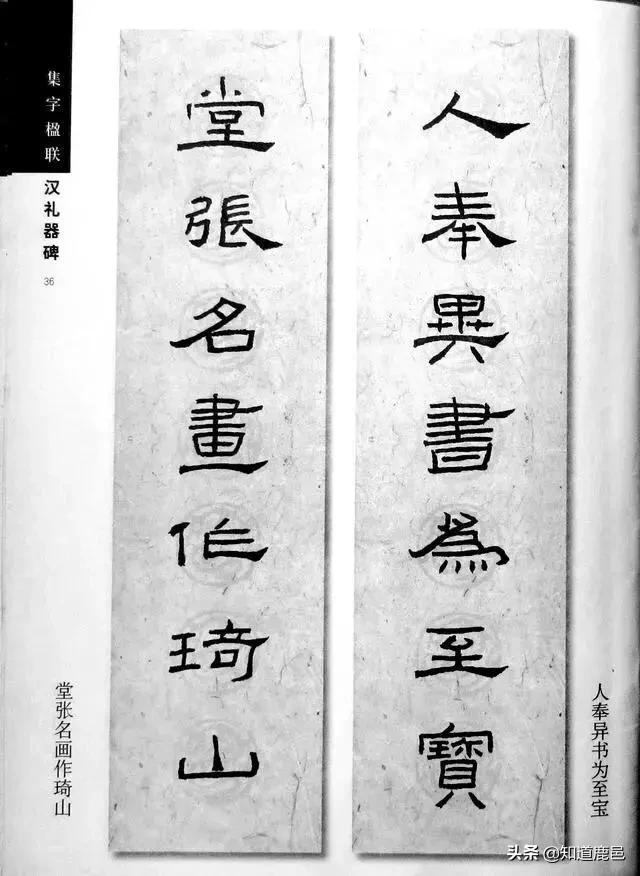 人奉異書為至寶
堂張名畫作琦山
人奉异书为至宝
堂张名画作琦山
集字楹联
汉礼器碑
36
头条 @知道鹿邑